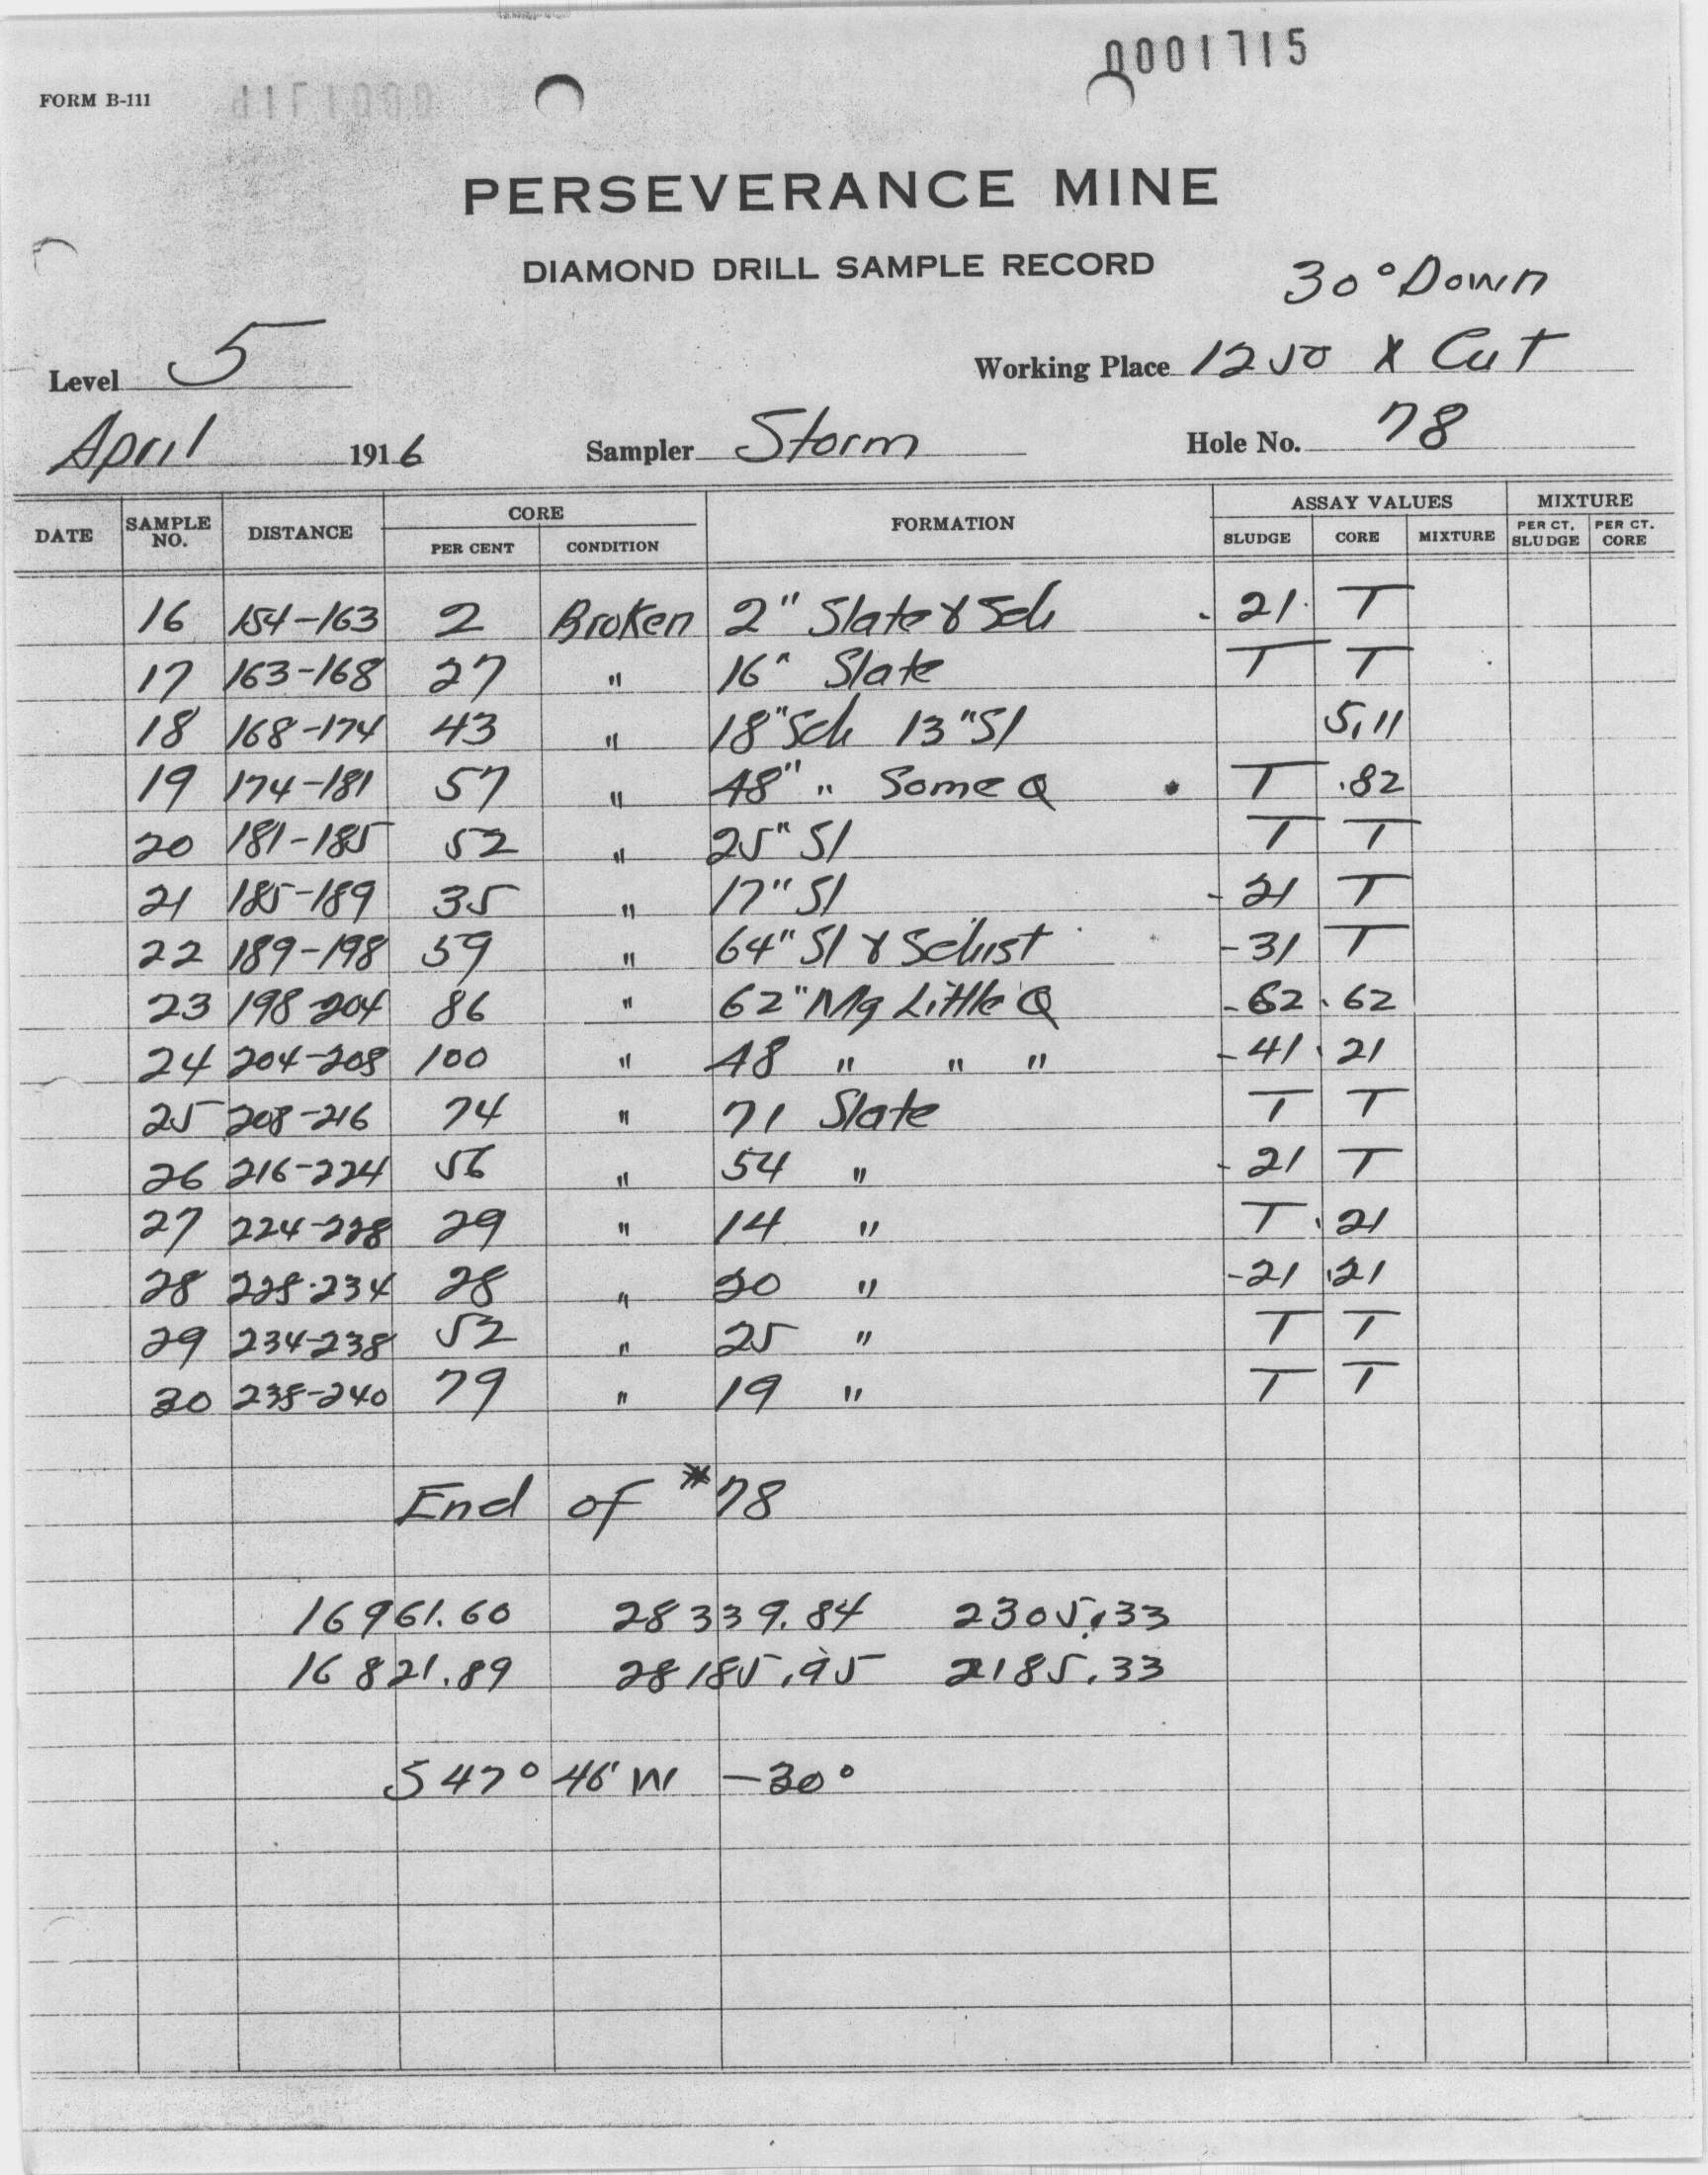 0001715
FORM B-111
PERSEVERANCE MINE
DIAMOND DRILL SAMPLE RECORD
30° Down
Level 5 Working Place 1250 X Cut
April 1916 Sampler Storm Hole No. 78
DATE SAMPLE NO. DISTANCE CORE PER CENT CONDITION FORMATION ASSAY VALUES SLUDGE CORE MIXTURE MIXTURE PER CT. SLUDGE PER CT. CORE
16 154-163 2 Broken 2" Slate & Sch .21 T
17 163-168 27 " 16" Slate T T
18 168-174 43 " 18" Sch 13" Sl 5.11
19 174-181 57 " 48" " Some Q T .82
20 181-185 52 " 25" Sl T T
21 185-189 35 " 17" Sl -21 T
22 189-198 59 " 64" Sl & Schist -31 T
23 198-204 86 " 62" Mg Little Q -62 .62
24 204-208 100 " 48 " " " -41 .21
25 208-216 74 " 71 Slate T T
26 216-224 56 " 54 " -21 T
27 224-228 29 " 14 " T .21
28 228-234 28 " 20 " -21 .21
29 234-238 52 " 25 " T T
30 238-240 79 " 19 " T T
End of #78
16961.60 28339.84 2305.33
16821.89 28185.95 2185.33
S 47° 46' W -30°